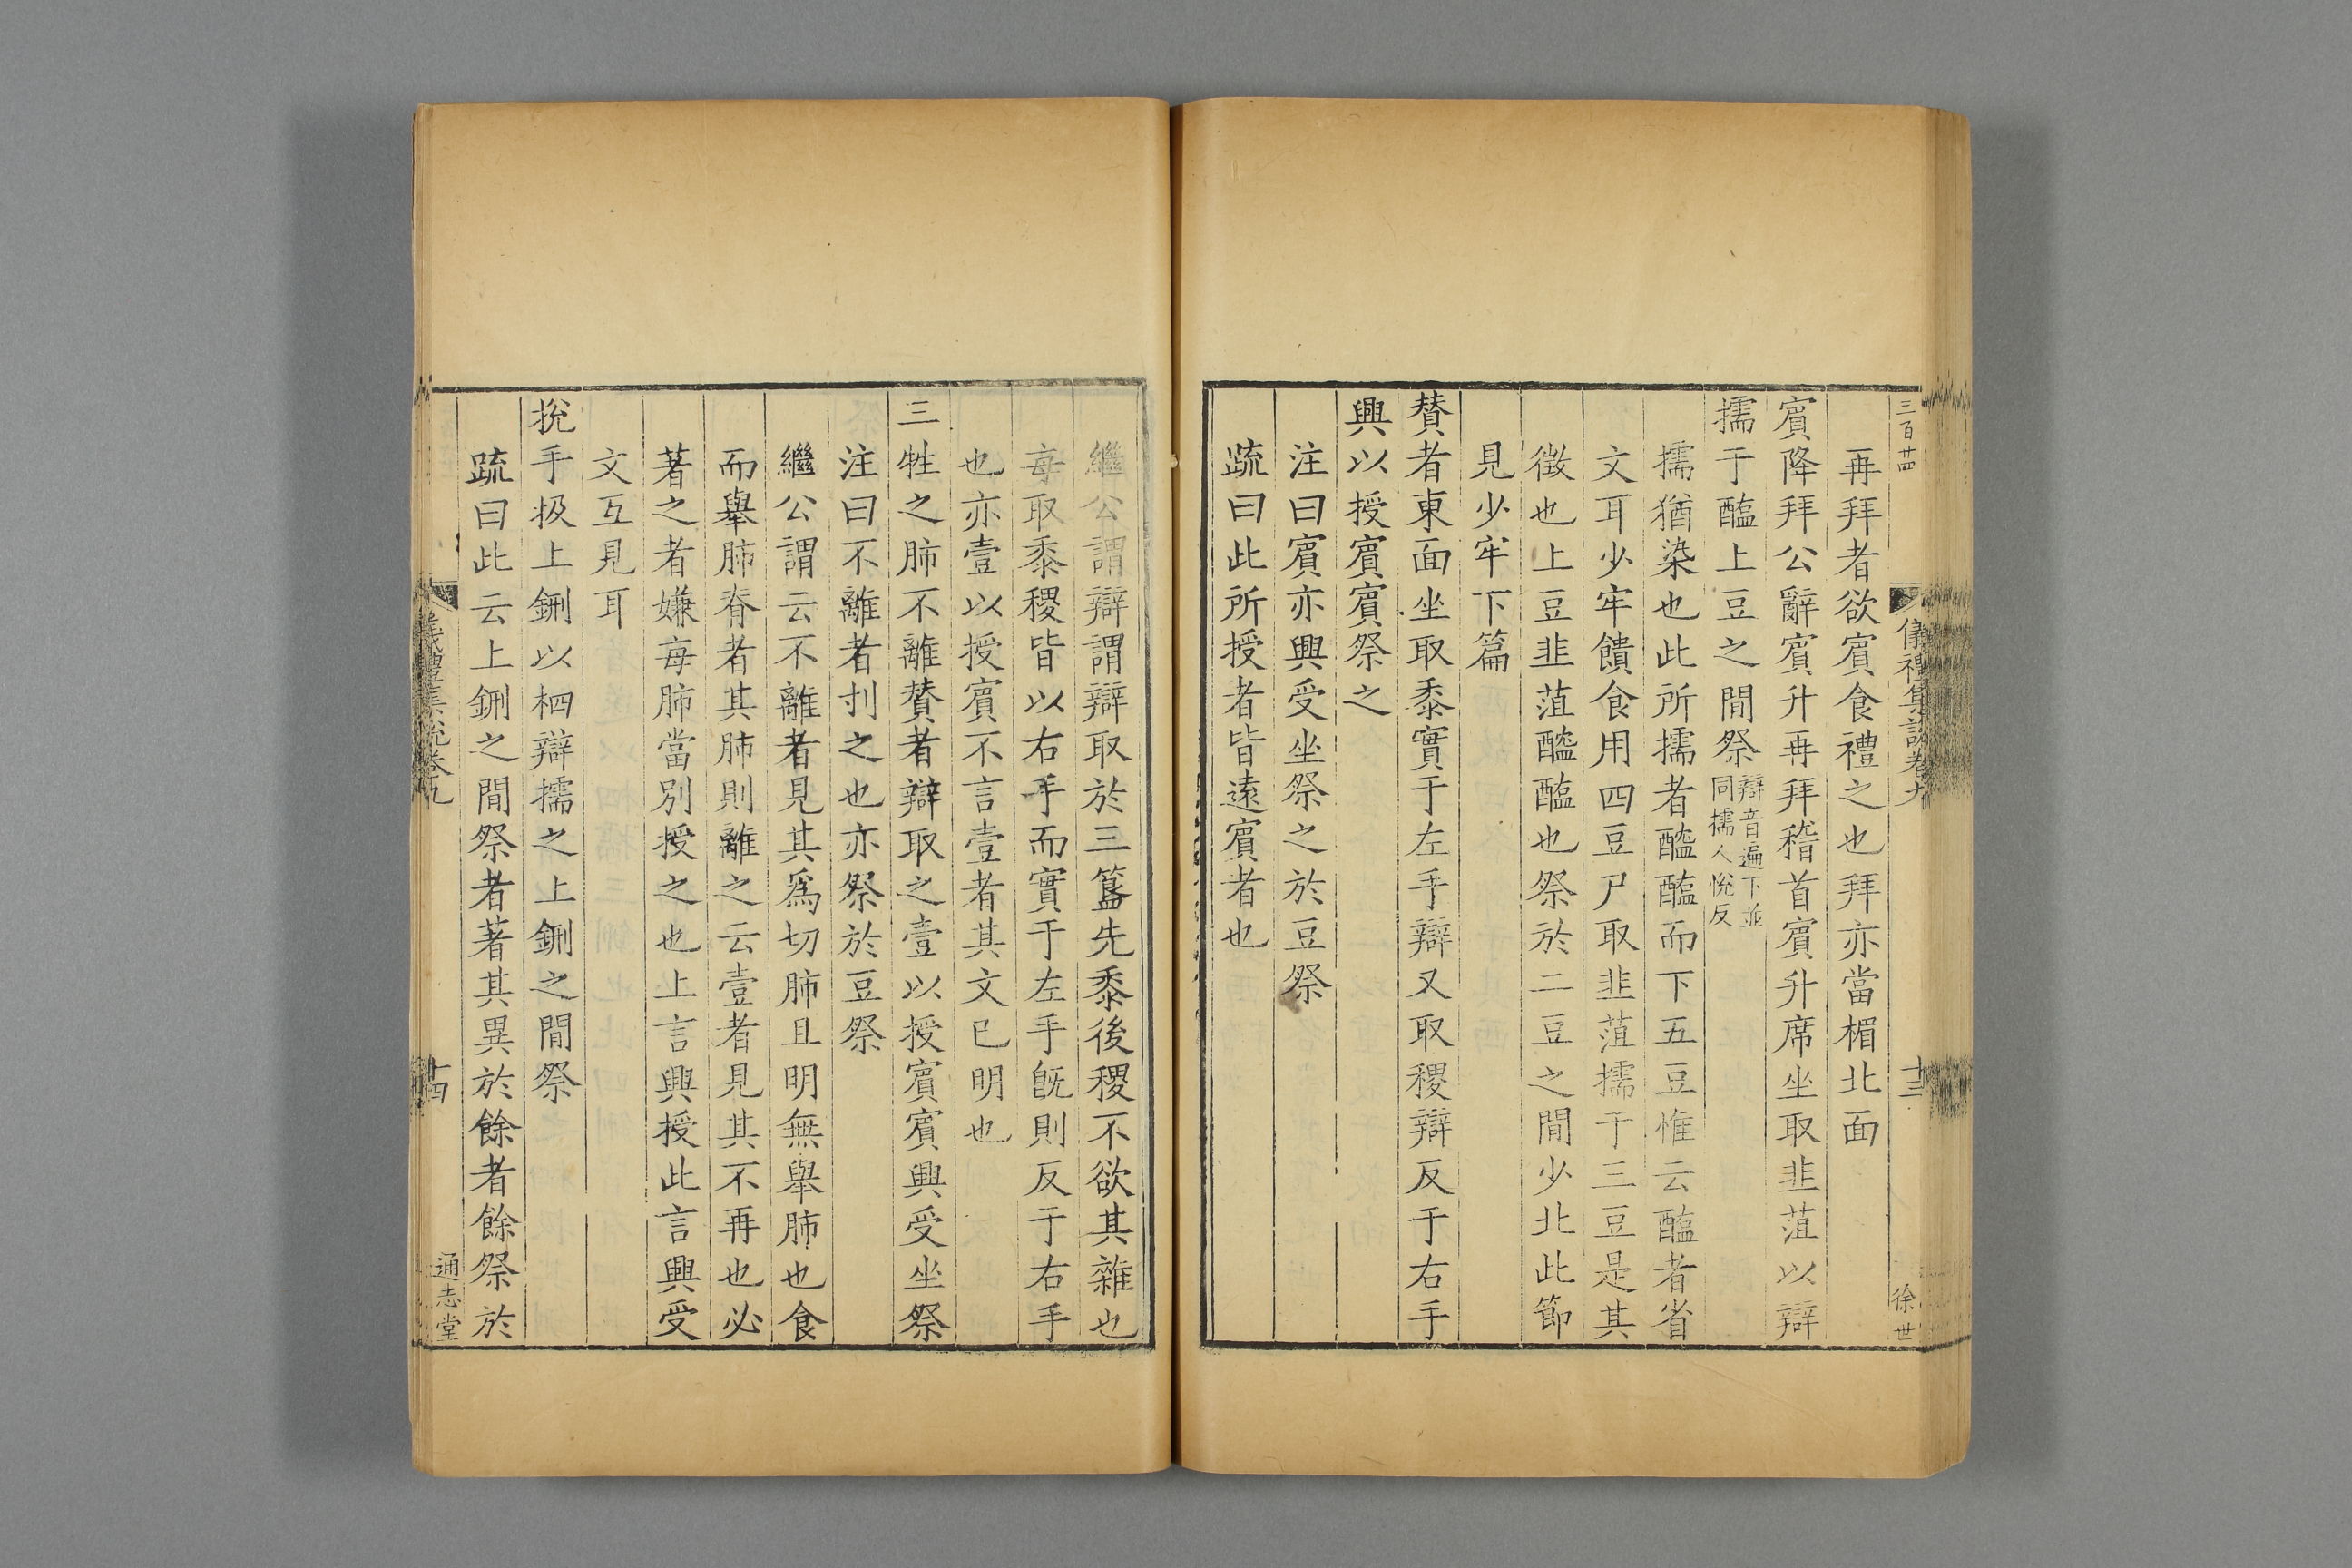 三百廿四
儀禮集說卷九
十三
徐世
再拜者欲賔食禮之也拜亦當楣北面
賔降拜公辭賔升再拜稽首賔升席坐取韭菹以辯
擩于醢上豆之間祭辯音遍下並同擩人悅反
擩猶染也此所擩者醯醢而下五豆惟云醢者省
文耳少牢饋食用四豆尸取韭菹擩于三豆是其
徵也上豆韭菹醯醢也祭於二豆之間少北此節
見少牢下篇
賛者東面坐取黍實于左手辯又取稷辯反于右手
興以授賔賔祭之
注曰賔亦興受坐祭之於豆祭
疏曰此所授者皆遠賔者也
繼公謂辯謂辯取於三簋先黍後稷不欲其雜也
每取黍稷皆以右手而實于左手旣則反于右手
也亦壹以授賔不言壹者其文已明也
三牲之肺不離賛者辯取之壹以授賔賔興受坐祭
注曰不離者刌之也亦祭於豆祭
繼公謂云不離者見其爲切肺且明無舉肺也食
而舉肺脊者其肺則離之云壹者見其不再也必
著之者嫌每肺當別授之也上言興授此言興受
文互見耳
挩手扱上鉶以柶辯擩之上鉶之間祭
疏曰此云上鉶之間祭者著其異於餘者餘祭於
儀禮集說卷九
十四
通志堂